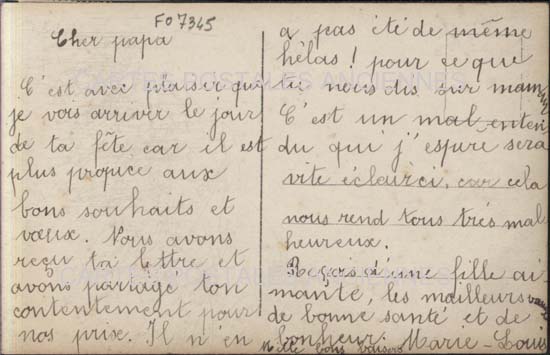 FO 7345
Cher papa
C'est avec plaisir que
je vois arriver le jour
de ta fête car il est
plus propice aux
bons souhaits et
vœux. Nous avons
reçu ta lettre et
avons partagé ton
contentement pour
nos prix. Il n'en
a pas été de même
hélas! pour ce que
tu nous dis sur maman
C'est un mal enten
du qui j'espère sera
vite éclairci, car cela
nous rend tous très mal
heureux.
Reçois d'une fille ai-
mante, les meilleurs vœux
de bonne santé et de
bonheur. Marie-Louise
Mille bons baisers
CARTES POSTALES ANCIENNES
CARTES POSTALES ANCIENNES